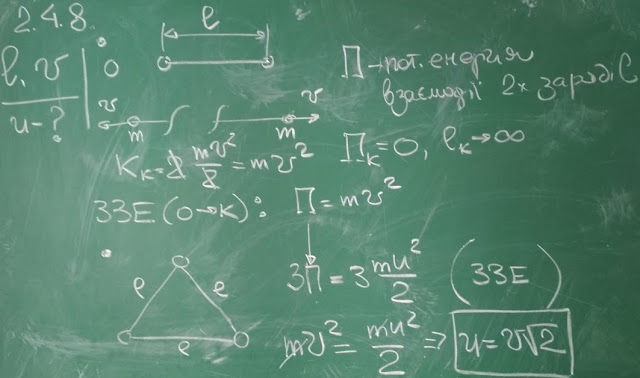 2.4.8.
l, v
u-?
0
l
П – пот. енергия
взаємодії 2х зарядів
v
m
m
v
Kк = 2 mv²/2 = mv²
Пк = 0, lк → ∞
ЗЗЕ (0→к): П = mv²
l
l
l
3П = 3 mu²/2 (ЗЗЕ)
mv² = mu²/2 ⇒ u = v√2